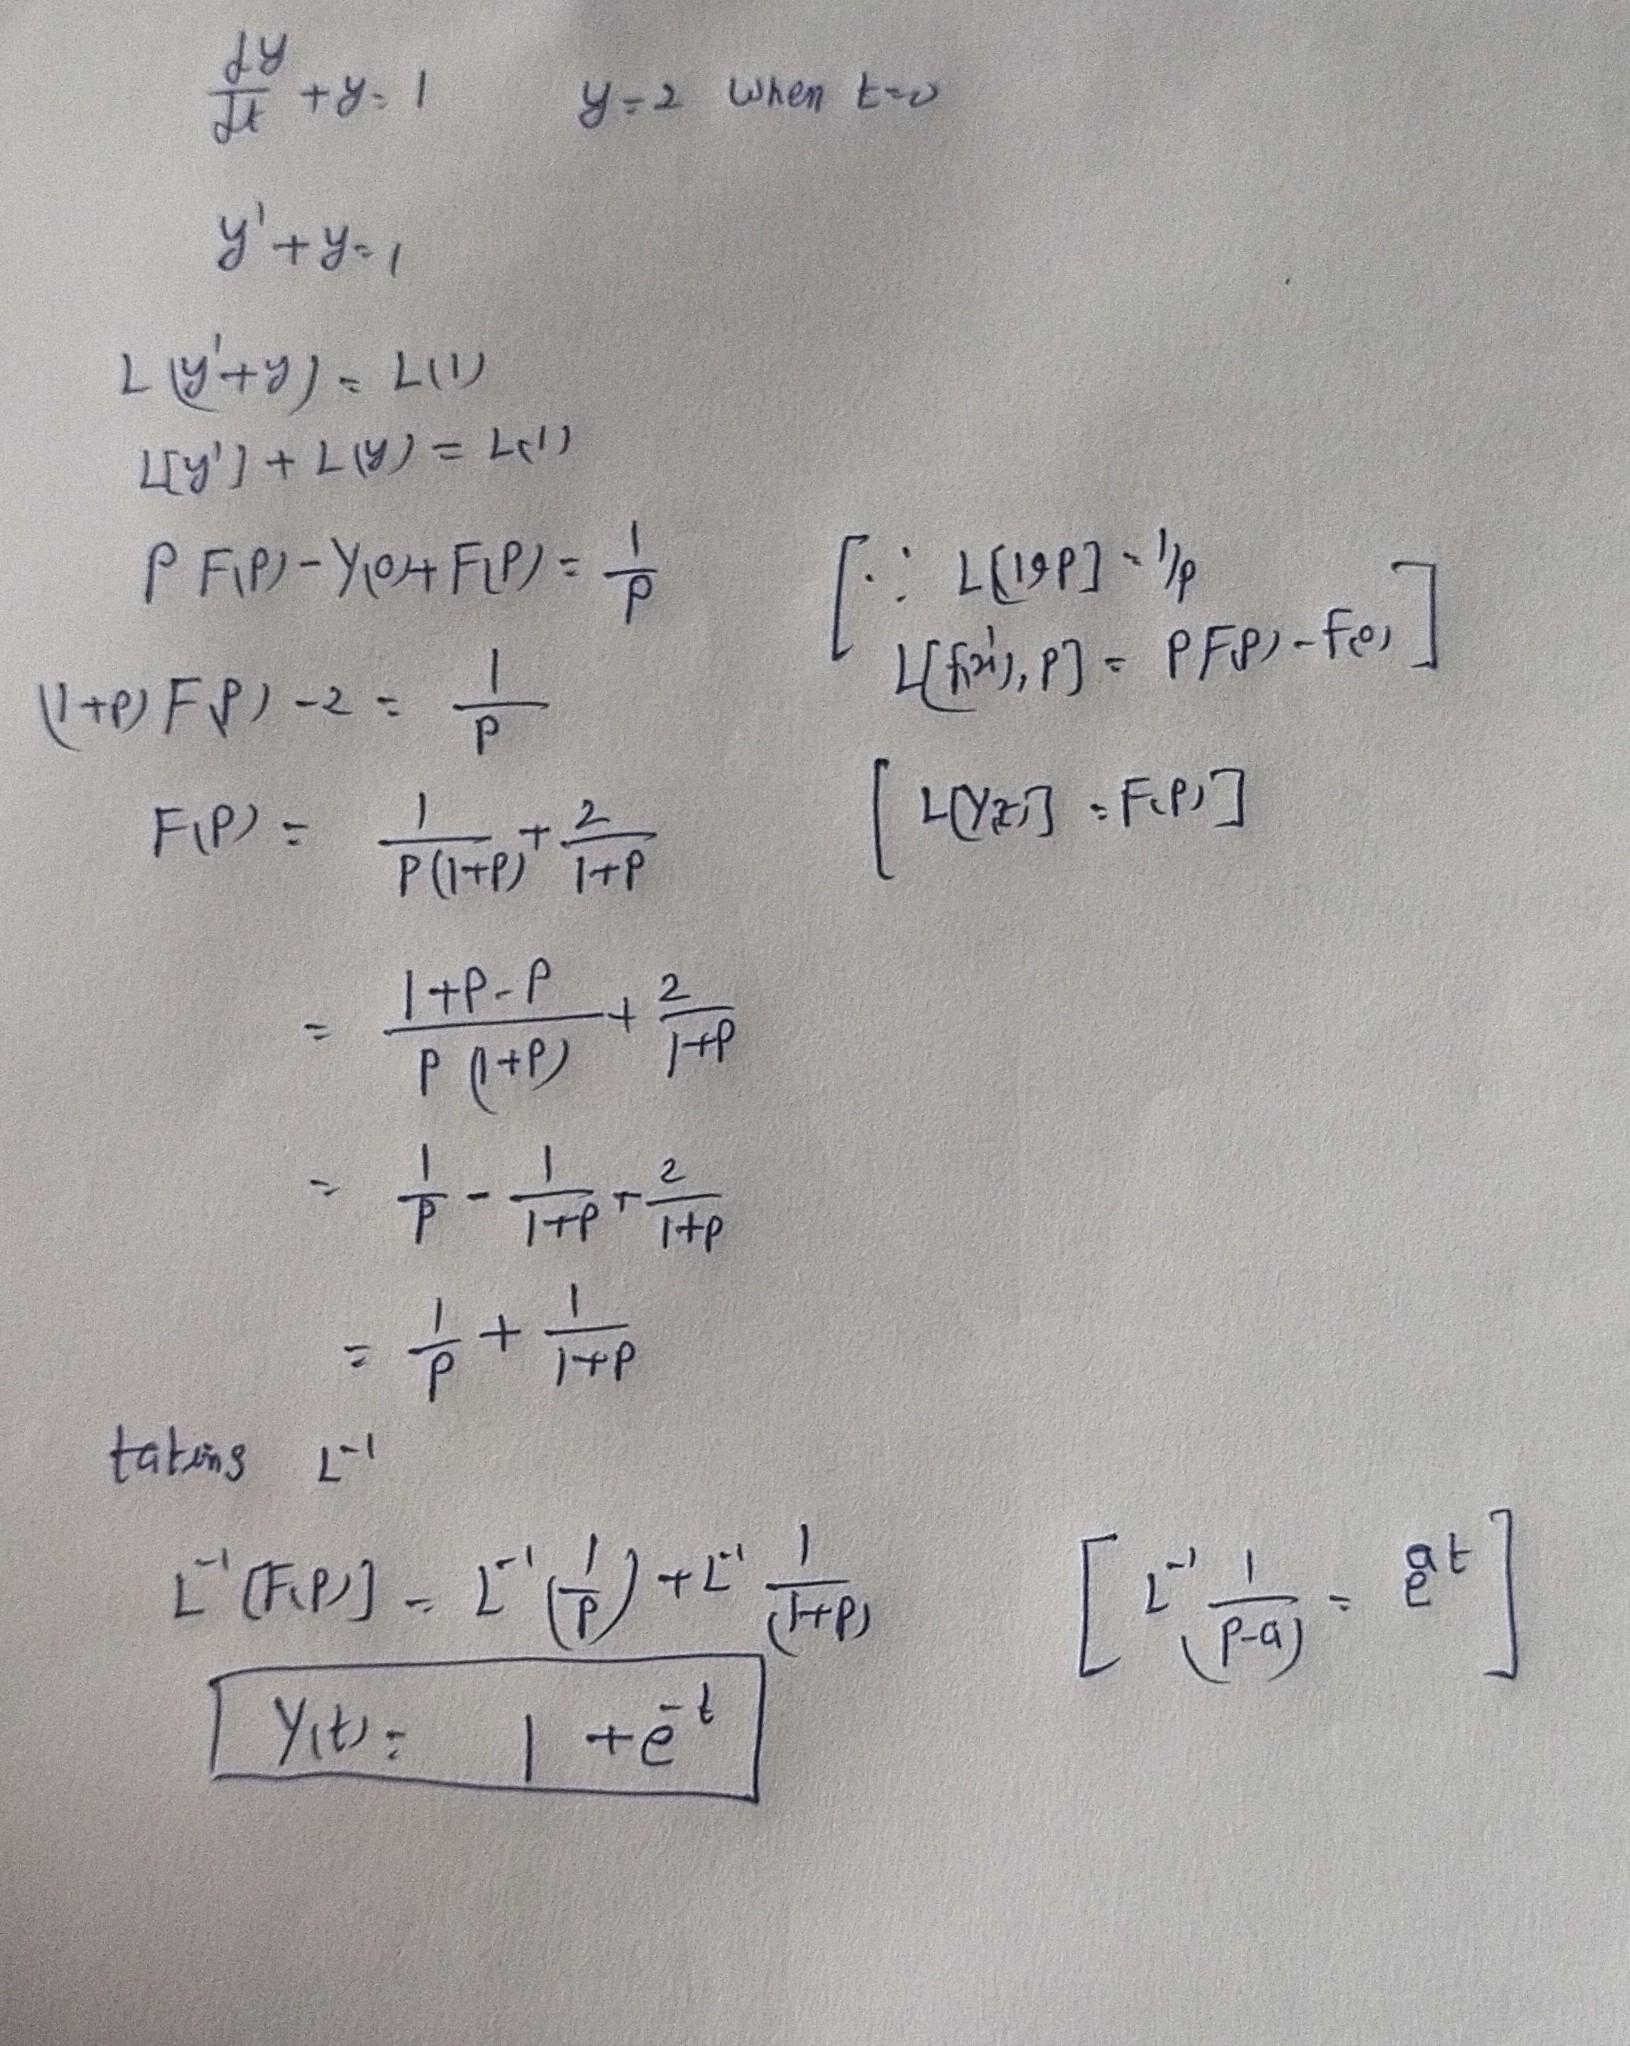 dy/dt + y = 1 y = 2 when t=0
y' + y = 1
L(y'+y) = L(1)
L[y'] + L(y) = L(1)
P F(P) - Y(0) + F(P) = 1/P [∵ L[1, P] = 1/P
(1+P) F(P) - 2 = 1/P L[f'(x), P] = P F(P) - F(0)]
F(P) = 1/P(1+P) + 2/1+P [L[Y(t)] = F(P)]
= 1+P-P/P(1+P) + 2/1+P
= 1/P - 1/1+P + 2/1+P
= 1/P + 1/1+P
taking L⁻¹
L⁻¹[F(P)] = L⁻¹(1/P) + L⁻¹ 1/(1+P) [L⁻¹ 1/(P-a) = e^at]
Y(t) = 1 + e^-t